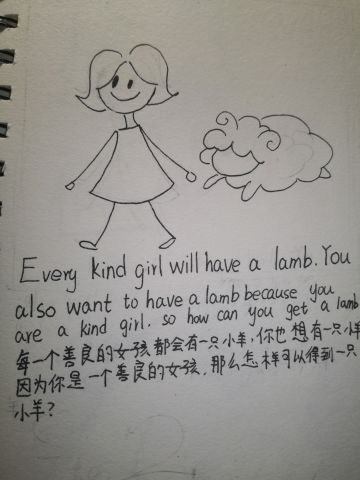 Every kind girl will have a lamb. You
also want to have a lamb because you
are a kind girl. so how can you get a lamb
每一个善良的女孩都会有一只小羊,你也想有一只小羊
因为你是一个善良的女孩,那么怎样可以得到一只
小羊?